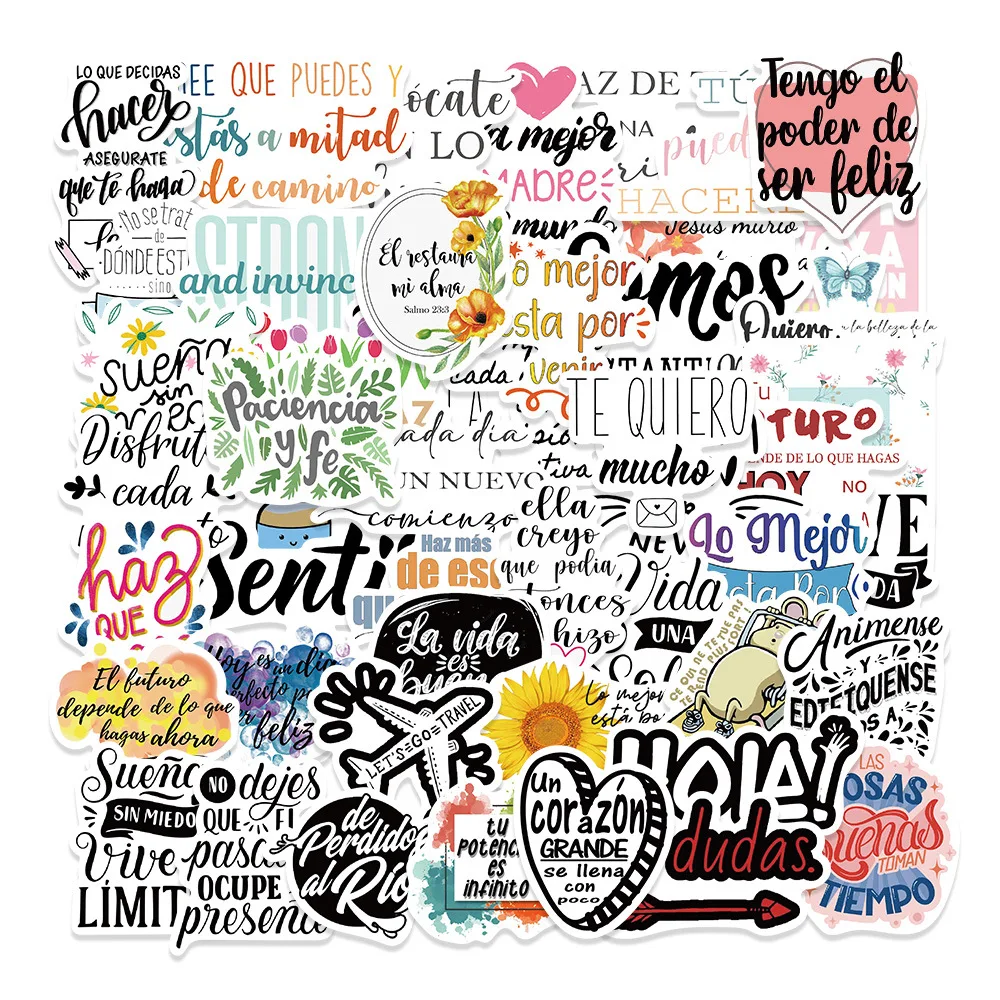 LO QUE DECIDAS
hacer
ASEGURATE
que te haga
EE QUE PUEDES Y
stás a mitad
de camino
ócate
N LO
a mejor
MADRE
mundo
AZ DE
NA
TÚ
pued
HACERE
Jesús murió
Tengo el
poder de
ser feliz
No se trat
de
DÓNDE EST
sino
STRON
and invinc
El restaura
mi alma
Salmo 23:3
o mejor
sta por
venir
mos
Quiero
a la belleza de la
sueña
sin
Disfrut
cada
Paciencia
y fe
cada
ada día
UN NUEVO
comienzo
TE QUIERO
mucho
TURO
ENDE DE LO QUE HAGAS
HOY
NO
haz
QUE
Senti
Haz más
de eso
qu
ella
creyo
que podia
tonces
hizo
NEV
Vida
UNA
Lo Mejor
sta Por
VE
DA
CE QUI NE TE TUE PAS
TE REND PLUS FORT !
Anímense
Y
EDIFÍQUENSE
El futuro
depende de lo que
hagas ahora
Hoy es un día
erfecto pa
r feliz
La vida
es
buen
LET'S GO TRAVEL
Lo mejor
está po
Sueña
SIN MIEDO
Vive
LÍMIT
NO dejes
QUE EL
pasa
OCUPE
presente
de
Perdido
al Río
tu
potenc
es
infinito
Un
corazón
GRANDE
se llena
con
poco
HOJA!
dudas.
LAS
COSAS
Buenas
TOMAN
TIEMPO